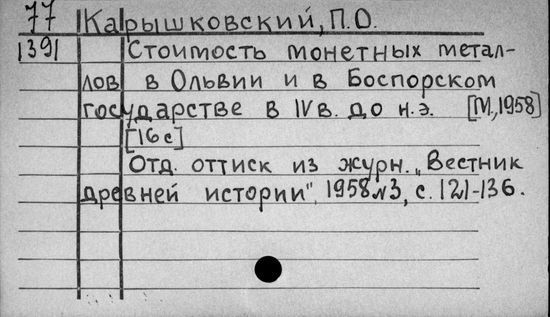 77 Карышковский, П.О.
1391 Стоимость монетных метал-
лов в Ольвии и в Боспорском
государстве в IV в. до н.э. [М., 1958]
[16 с]
Отд. оттиск из журн. „Вестник
древней истории", 1958 №3, с. 121-136.